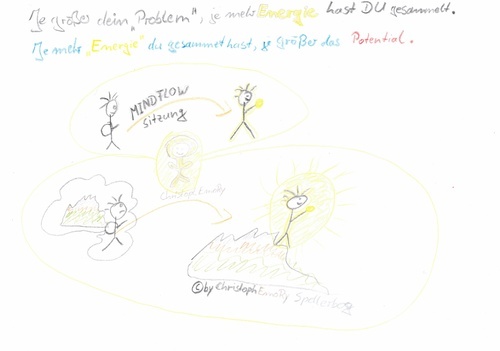 Je größer dein "Problem", je mehr Energie hast DU gesammelt.
Je mehr "Energie" du gesammelt hast, je größer das Potential.
MINDFLOW
Sitzung
© by Christoph